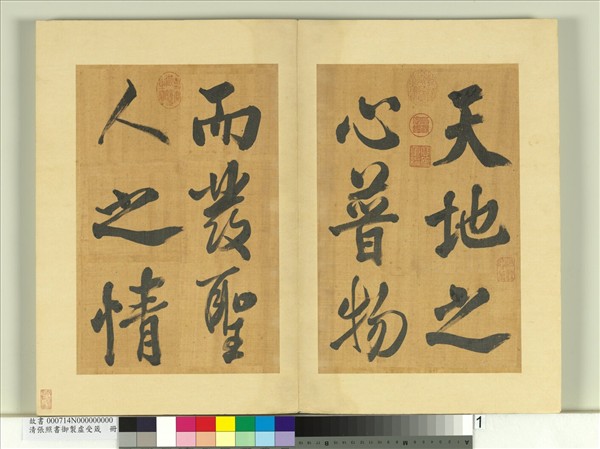 天地之
心普物
而發聖
人之情
故書 000714N000000000
清張照書御製虛受箴 冊
1